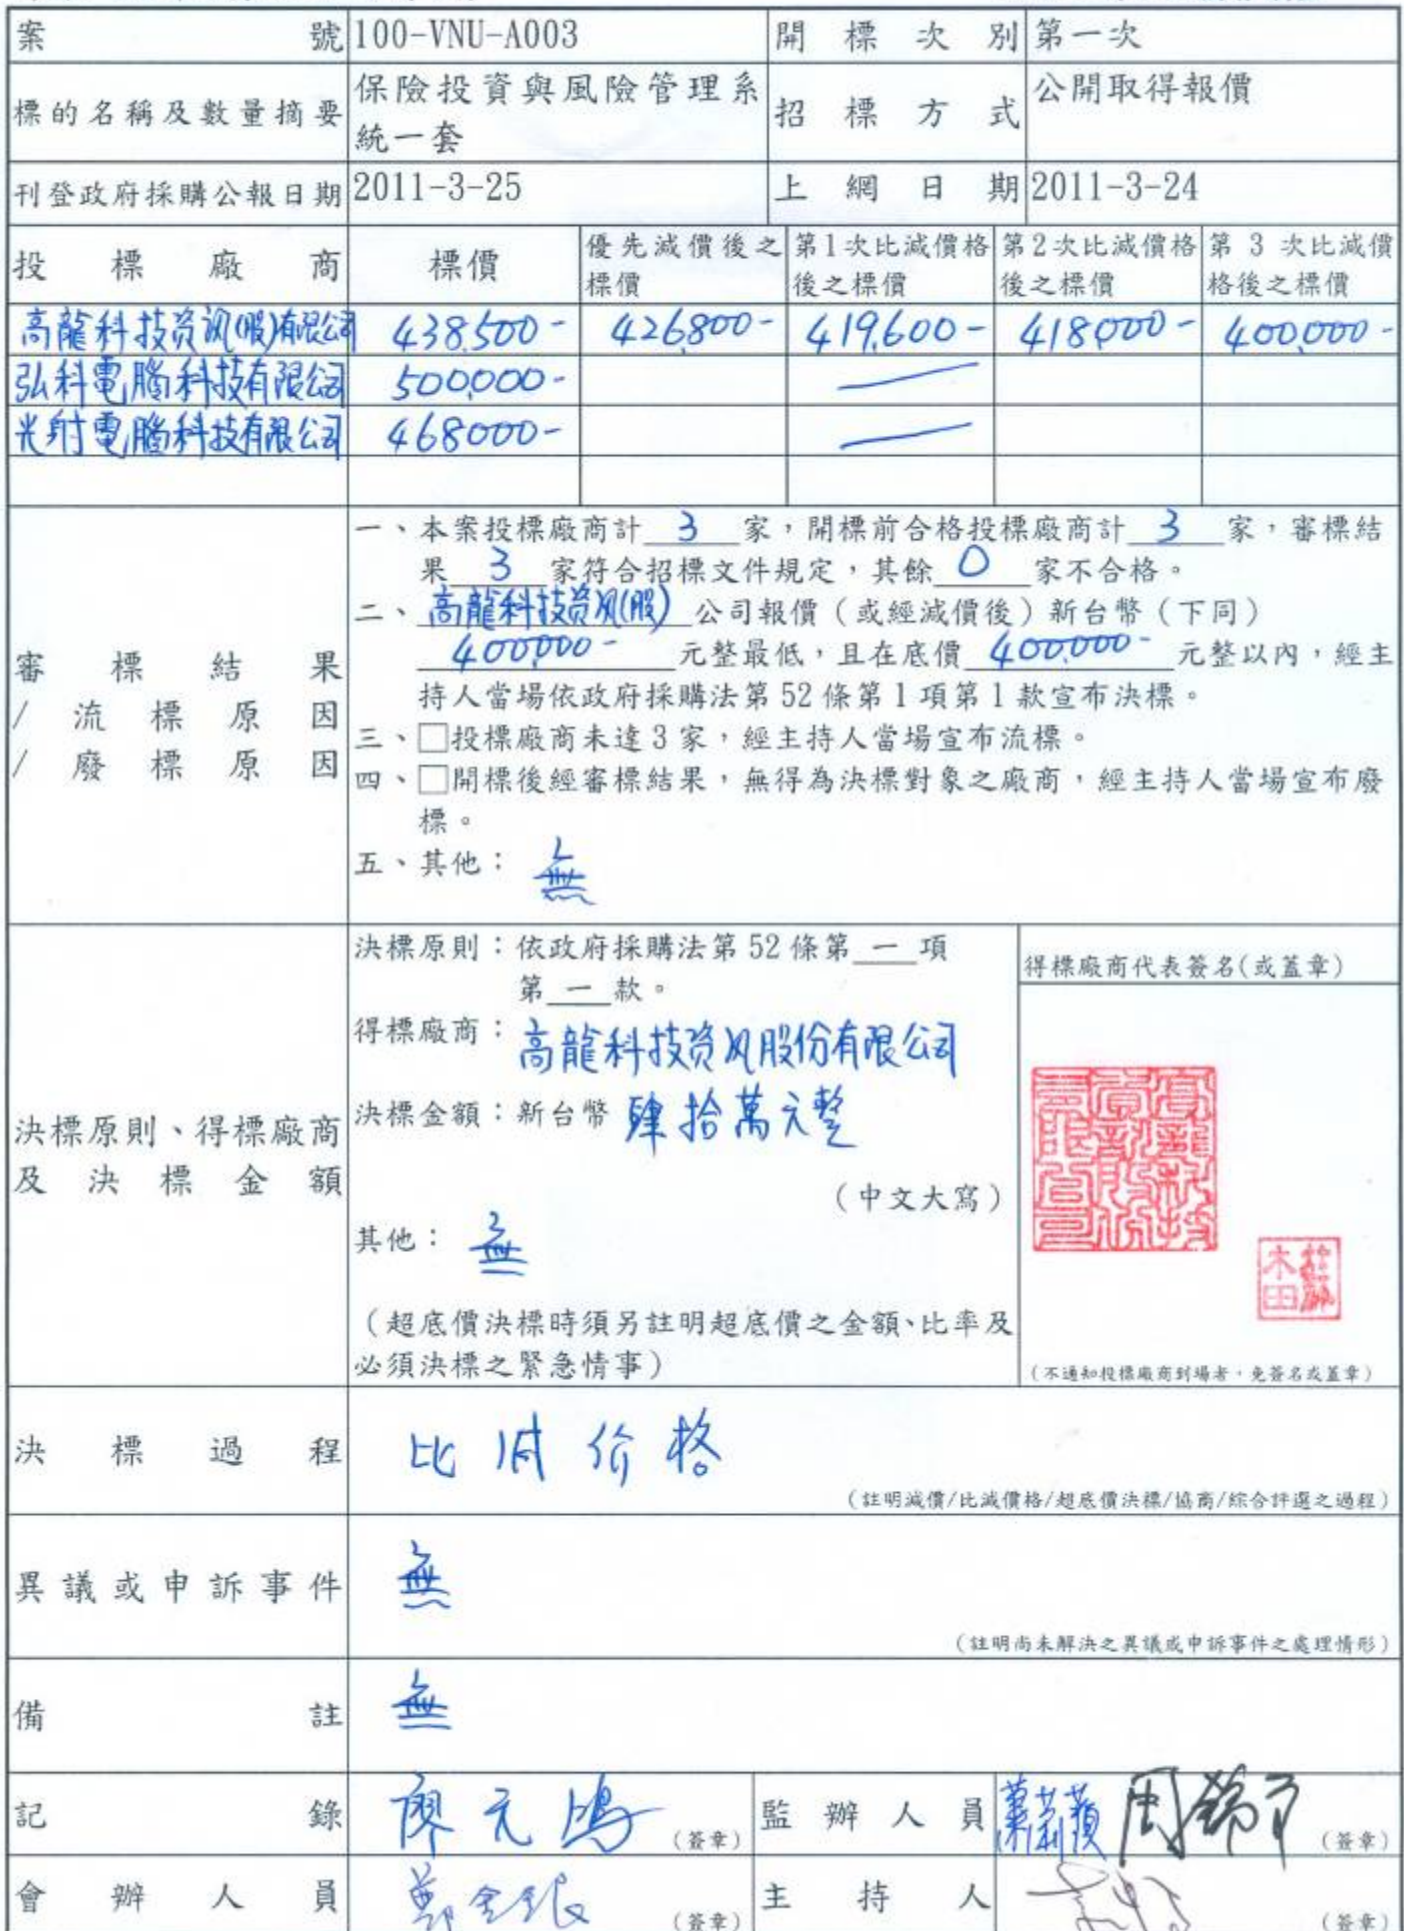 案號 100-VNU-A003 開標次別 第一次
標的名稱及數量摘要 保險投資與風險管理系
統一套 招標方式 公開取得報價
刊登政府採購公報日期 2011-3-25 上網日期 2011-3-24
投標廠商 標價 優先減價後之 第1次比減價格 第2次比減價格 第3次比減價
標價 後之標價 後之標價 格後之標價
高龍科技資訊(股)有限公司 438,500- 426,800- 419,600- 418,000- 400,000-
弘科電腦科技有限公司 500,000-
光射電腦科技有限公司 468000-
一、本案投標廠商計 3 家,開標前合格投標廠商計 3 家,審標結
果 3 家符合招標文件規定,其餘 0 家不合格。
二、高龍科技資訊(股) 公司報價(或經減價後)新台幣(下同)
400,000- 元整最低,且在底價 400,000- 元整以內,經主
持人當場依政府採購法第52條第1項第1款宣布決標。
審標結果
/流標原因
/廢標原因
三、□投標廠商未達3家,經主持人當場宣布流標。
四、□開標後經審標結果,無得為決標對象之廠商,經主持人當場宣布廢
標。
五、其他:無
決標原則、得標廠商
及決標金額
決標原則:依政府採購法第52條第 一 項
第 一 款。
得標廠商:高龍科技資訊股份有限公司
決標金額:新台幣 肆拾萬元整
(中文大寫)
其他:無
(超底價決標時須另註明超底價之金額、比率及
必須決標之緊急情事)
得標廠商代表簽名(或蓋章)
(不通知投標廠商到場者,免簽名或蓋章)
決標過程 比減价格
(註明減價/比減價格/超底價決標/協商/綜合評選之過程)
異議或申訴事件 無
(註明尚未解決之異議或申訴事件之處理情形)
備註 無
記錄 廖元鴻 (簽章) 監辦人員 (簽章)
會辦人員 (簽章) 主持人 (簽章)